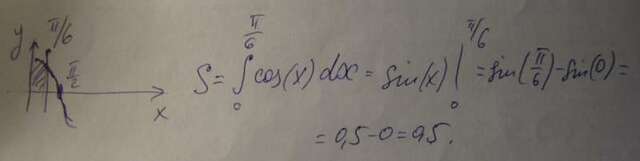 y π/6
π/2
x
S = ∫₀^(π/6) cos(x) dx = sin(x) |₀^(π/6) = sin(π/6) - sin(0) =
= 0,5 - 0 = 0,5.